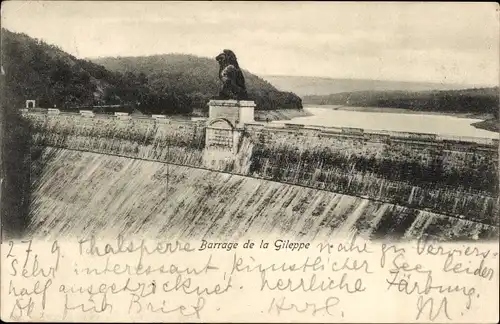 Barrage de la Gileppe
27 9 Thalsperre nahe zu Verviers
Sehr interessant künstlicher See leider
half ausgetrocknet. herrliche Färbung.
für Brief. Herzl. M.